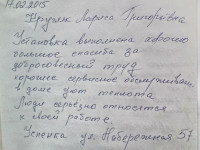 17.02.2015
Круглик Лариса Григорьевна
Установка выполнена хорошо
большое спасибо за
добросовестный труд
хорошее сервисное обслуживан.
в доме уют теплота
Люди серьезно относятся
к своей работе.
Успенка ул. Набережная 57